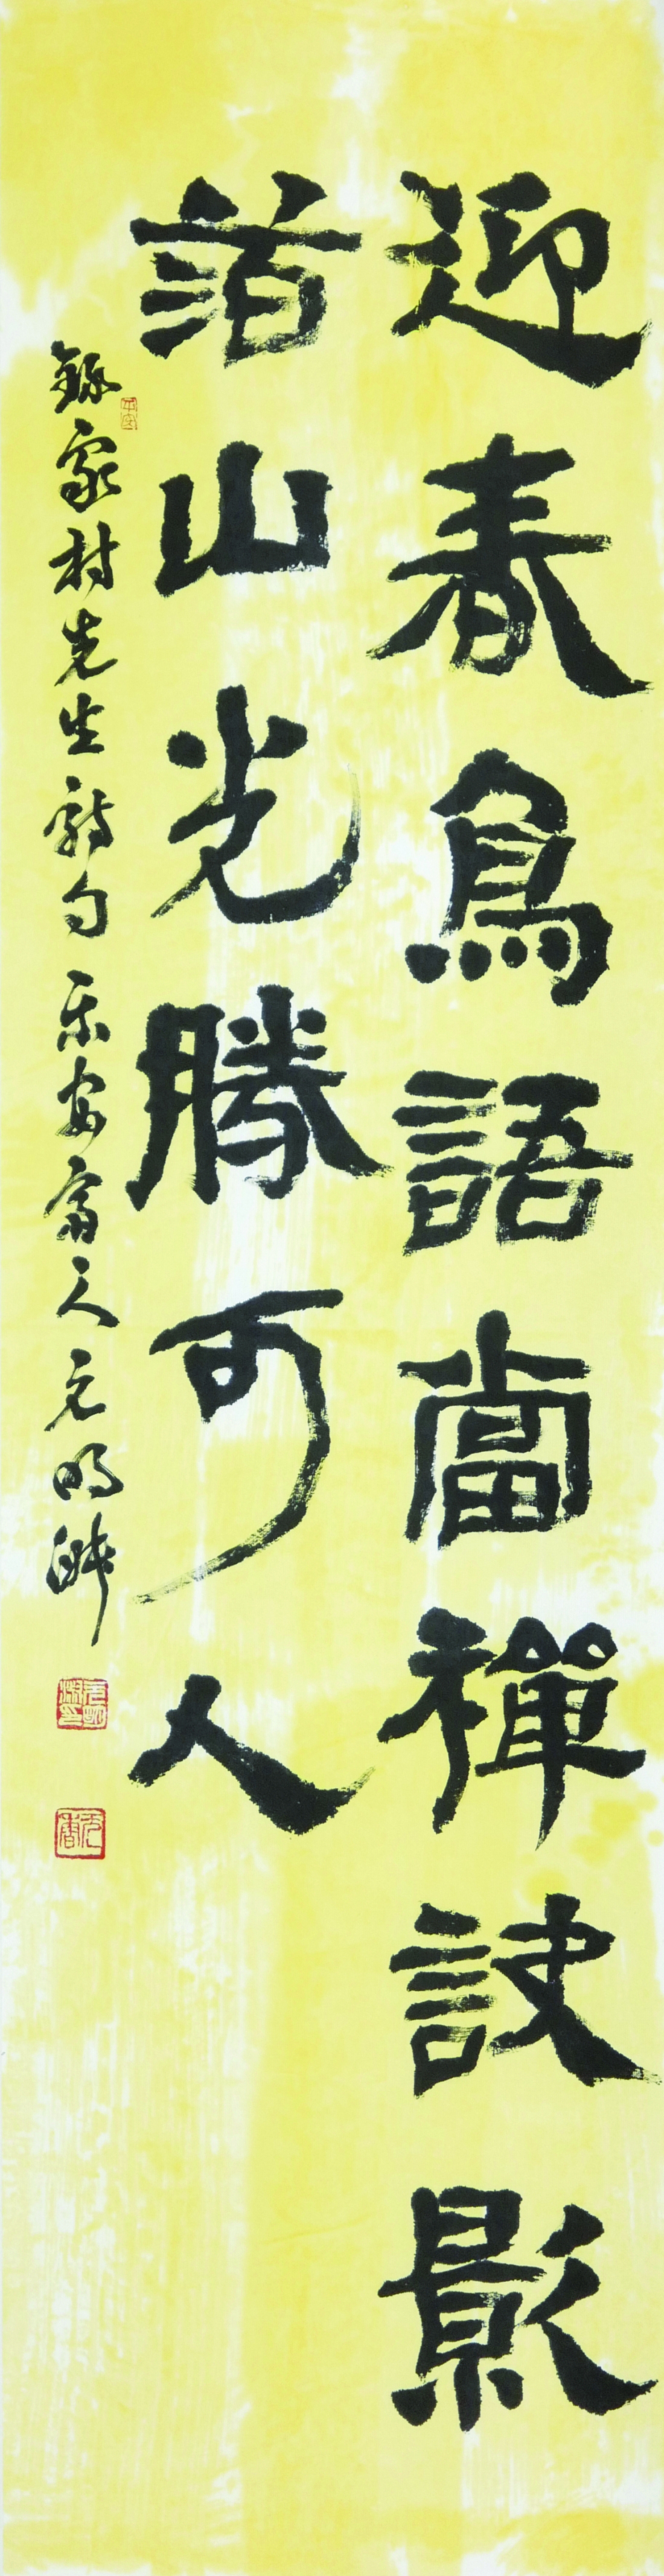 迎春鳥語當禪訣影
落山光勝可人
錄家村先生詩句 乐安 人 元明
平安